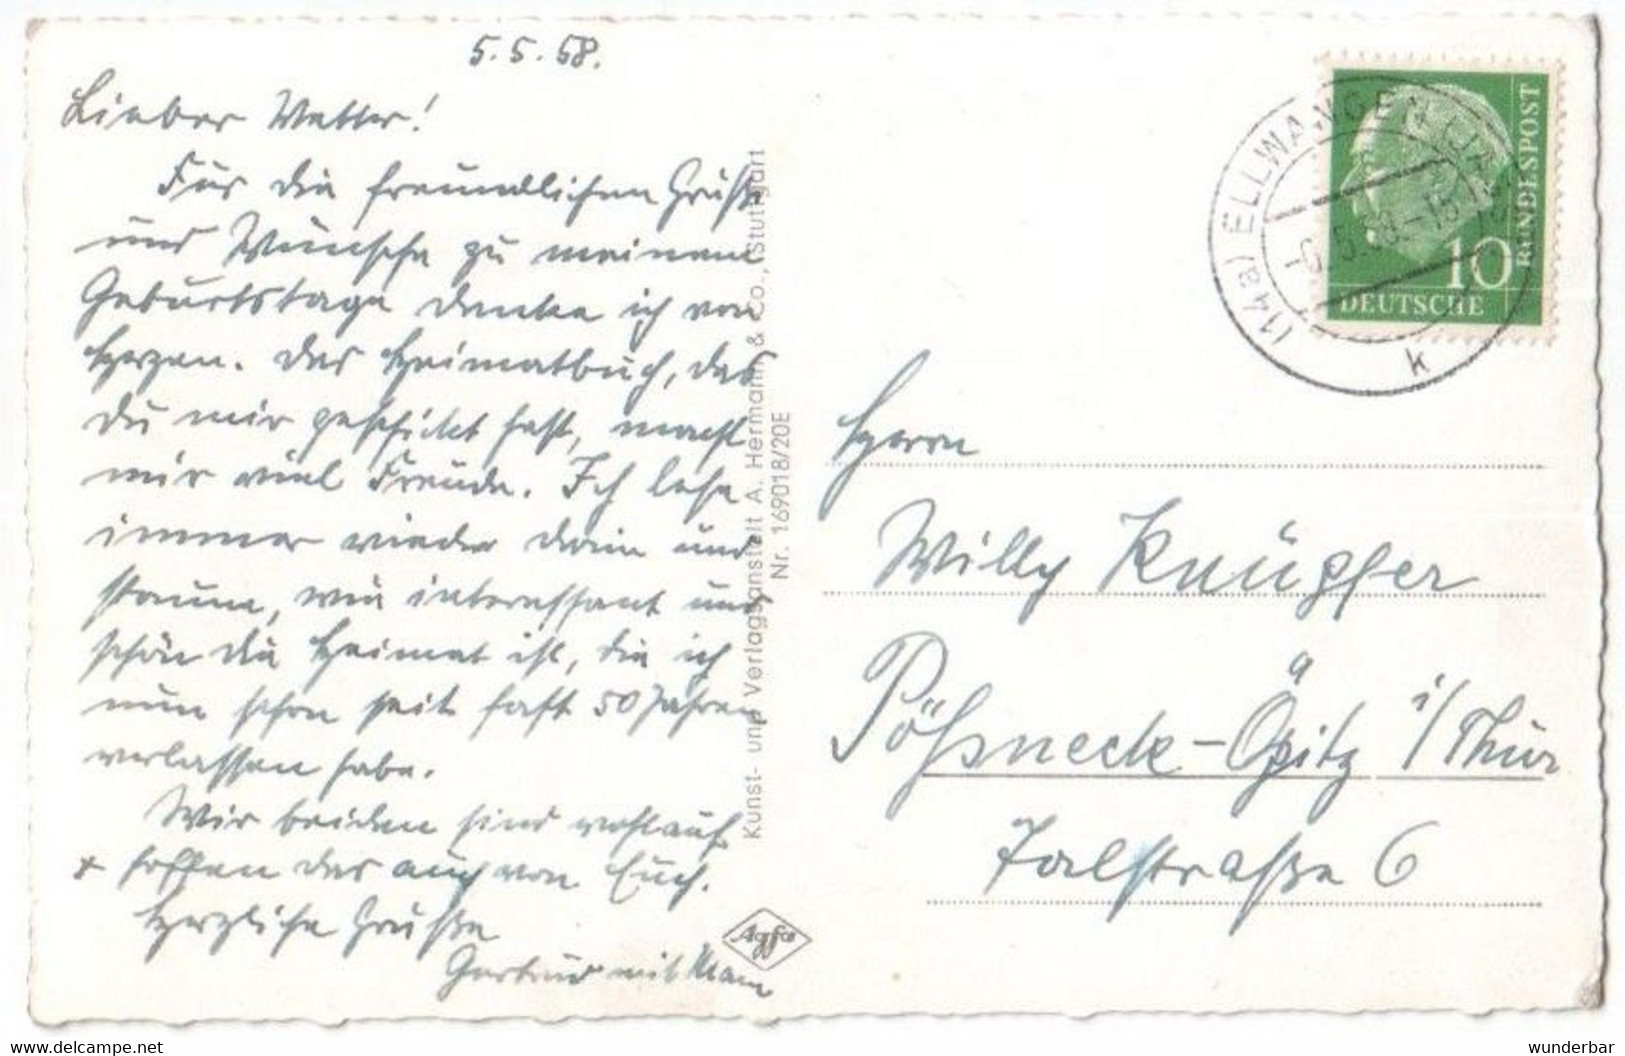 5.5.58.
Lieber Vetter!
Für die freundlichen Grüße
und Wünsche zu meinem
Geburtstage danke ich von
Herzen. Das Heimatbuch, das
Du mir geschickt hast, macht
mir viel Freude. Ich lese
immer wieder darin und
staune, wie interessant und
schön die Heimat ist, die ich
nun schon seit fast 50 Jahren
verlassen habe.
Wir beiden sind wohlauf
+ hoffen das auch von Euch.
Herzliche Grüße
Gertrud mit Mann
Kunst- und Verlagsanstalt A. Hermann & Co., Stuttgart
Nr. 169018/20E
Agfa
(14a) ELLWANGEN (JA
-5.5.58.-15
k
10
DEUTSCHE
BUNDESPOST
Herrn
Willy Knüpfer
Pößneck-Öpitz i/Thür
Talstraße 6
www.delcampe.net
wunderbar